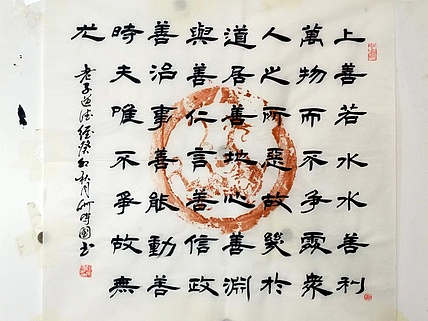 上善若水水善利
萬物而不爭處衆
人之所惡故幾於
道居善地心善淵
與善仁言善信政
善治事善能動善
時夫唯不爭故無
尤
老子道德經癸卯秋月時國书